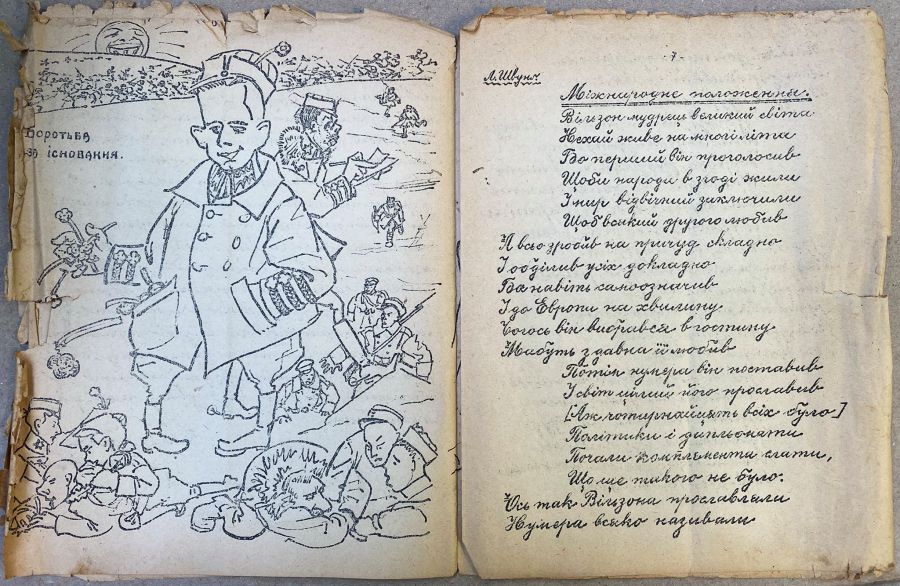 Боротьба
за існовання.
7.
Л. Швунг
Міжнародне положення.
Вільзон мудрец великий світа
Нехай живе на многі літа
Бо перший він проголосив
Щоби народи в згоді жили
І мир відвічний заключили
Щоб всякий другого любив
А всьо зробив на причуд складно
І обділив усіх докладно
Та навіть самоозначив
І до Европи на хвилину
Чогось він вибрався в гостину
Мабуть здавна її любив
Потім нумера він поставив
І світ цілий його прославив
[Аж чотирнайцять всіх було]
Політики і дипльомати
Почали комплємента слати,
Що ще такого не було.
Ось так Вільзона прославляли
Нумера всяко називали